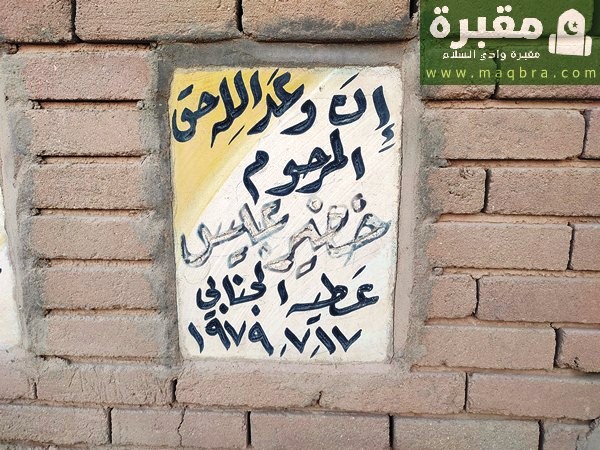 مقبرة
مقبرة وادي السلام
www.maqbra.com
إن وعد الله حق
المرحوم
خضير عليس
عطيه الجنابي
١٩٧٩.٧.١٧